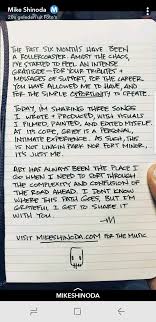 Mike Shinoda
THE PAST SIX MONTHS HAVE BEEN
A ROLLERCOASTER. AMIDST THE CHAOS,
I'VE STARTED TO FEEL AN INTENSE
GRATITUDE — FOR YOUR TRIBUTES &
MESSAGES OF SUPPORT, FOR THE CAREER
YOU HAVE ALLOWED ME TO HAVE, AND
FOR THE SIMPLE OPPORTUNITY TO CREATE.
TODAY, I'M SHARING THREE SONGS
I WROTE & PRODUCED, WITH VISUALS
I FILMED, PAINTED, AND EDITED MYSELF.
AT ITS CORE, GRIEF IS A PERSONAL,
INTIMATE EXPERIENCE. AS SUCH, THIS
IS NOT LINKIN PARK NOR FORT MINOR,
IT'S JUST ME.
ART HAS ALWAYS BEEN THE PLACE I
GO WHEN I NEED TO SORT THROUGH
THE COMPLEXITY AND CONFUSION OF
THE ROAD AHEAD. I DON'T KNOW
WHERE THIS PATH GOES, BUT I'M
GRATEFUL I GET TO SHARE IT
WITH YOU.
VISIT MIKESHINODA.COM FOR THE MUSIC
MIKESHINODA